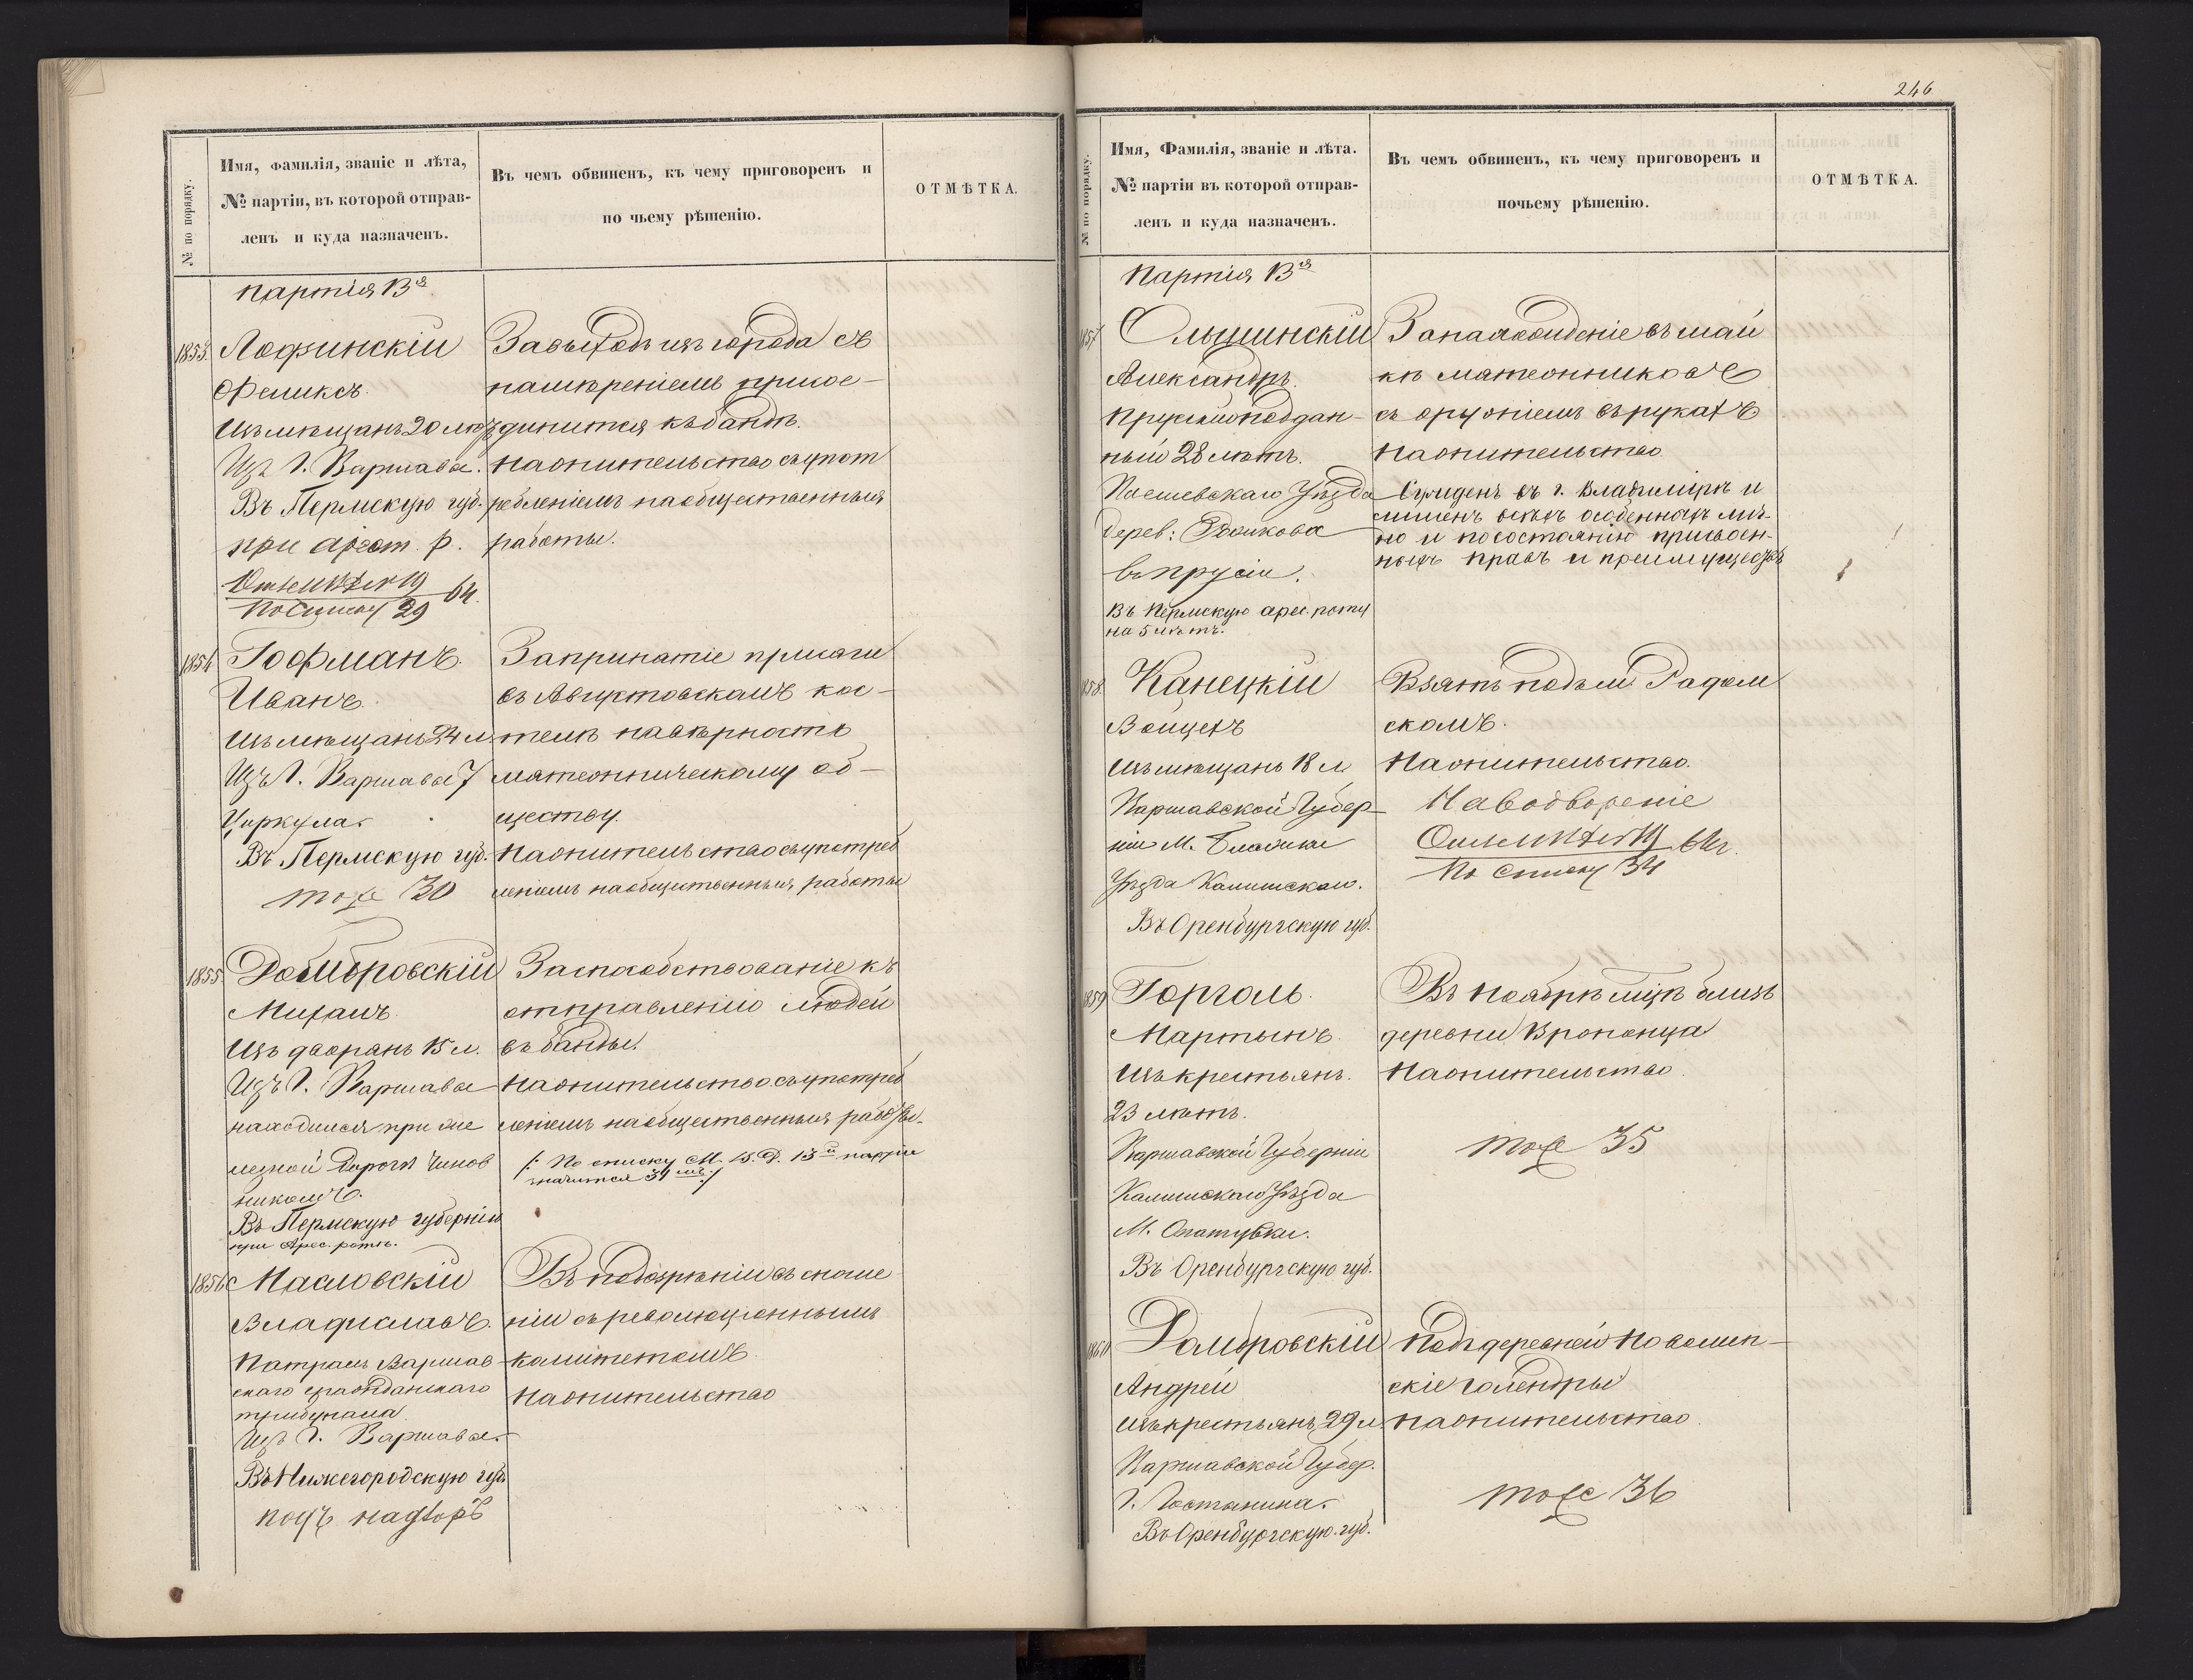 № по порядку.
Имя, фамилія, званіе и лѣта,
№ партіи, въ которой отправ-
ленъ и куда назначенъ.
Въ чемъ обвиненъ, къ чему приговоренъ и
по чьему рѣшенію.
ОТМѢТКА.
партія 13я
1853.
Лофинскій
Феликсъ.
Изъ мѣщанъ 20 лѣтъ
Изъ Г. Варшавы.
Въ Пермскую губ.
при арест. р.
По списку 29
64.
За выходъ изъ города съ
намѣреніемъ присое-
динится къ бандѣ.
На жительство съ упот
ребленіемъ на общественныя
работы.
1854
Гофманъ.
Иванъ.
Изъ мѣщанъ 24 л.
Изъ Г. Варшавы 7
Циркула.
Въ Пермскую губ.
тоже 30
За принятіе присяги
въ Августовскомъ кос-
телѣ на вѣрность
мятежническому об-
ществу.
На жительство съ употреб
леніемъ на общественныя работы
1855
Домбровскій
Михаилъ.
Изъ дворянъ 15 л.
Изъ Г. Варшавы
находился при же
лезной дорогѣ чинов
никомъ.
Въ Пермскую губернію
при Арес. ротѣ.
За способствованіе къ
отправленію людей
въ банды.
На жительство съ употреб
леніемъ на общественныя работы.
/: По списку М. В. Д. 13й партіи
значится 31мъ :/
1856
Масловскій
Владиславъ.
Патронъ Варшав
скаго гражданскаго
трибунала
Изъ Г. Варшавы.
Въ Нижегородскую губ
подъ надзоръ
Въ подозрѣніи въ сноше
ніи съ революціоннымъ
комитетомъ.
На жительство
246
№ по порядку.
Имя, Фамилія, званіе и лѣта.
№ партіи въ которой отправ-
ленъ и куда назначенъ.
Въ чемъ обвиненъ, къ чему приговоренъ и
почьему рѣшенію.
ОТМѢТКА.
Партія 13я
1857
Ольшинскій
Александръ.
Прускій поддан-
ный 28 лѣтъ.
Уѣзда
Дерев:
въ Прусіи.
Въ Пермскую арес. роту
на 5 лѣтъ.
За нахожденіе въ шай
кѣ мятежниковъ
съ оружіемъ въ рукахъ
На жительство
Сужденъ въ г. Владимірѣ и
лишенъ всѣхъ особенныхъ лич-
но и по состоянію присвоен-
ныхъ правъ и преимуществъ
1858.
Канецкій
Войцехъ
Изъ мѣщанъ 18 л
Варшавской Губер-
ніи М. Блашки
Уѣзда Калишскаго.
Въ Оренбургскую губ.
Взятъ подъ м. Радом
скомъ.
На жительство.
На водвореніе
64 г.
По списку 34
1859
Горголь.
Мартынъ.
Изъ крестьянъ.
23 лѣтъ.
Варшавской Губерніи
Калишскаго Уѣзда
М. Опатувки.
Въ Оренбургскую губ.
Въ ноябрѣ мцѣ близь
деревни
На жительство.
тоже 35
1860
Домбровскій
Андрей
Изъ крестьянъ, 29 л.
Варшавской Губер.
Г. Гостынина.
Въ Оренбургскую губ.
Подъ деревней
скіе голендры
на жительство.
тоже 36